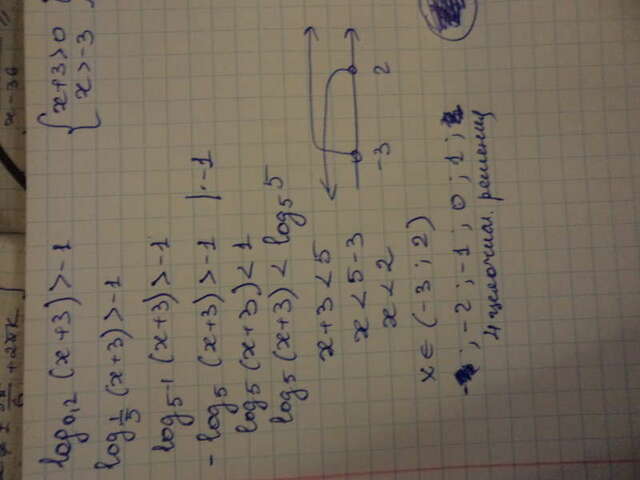 log₀,₂ (x+3) > -1
{ x+3>0
x>-3
log_{1/5} (x+3) > -1
log_{5^{-1}} (x+3) > -1
-log₅ (x+3) > -1 | · -1
log₅ (x+3) < 1
log₅ (x+3) < log₅ 5
x+3 < 5
x < 5-3
x < 2
-3 2
x ∈ (-3 ; 2)
; -2 ; -1 ; 0 ; 1 ;
4 целочисл. решения